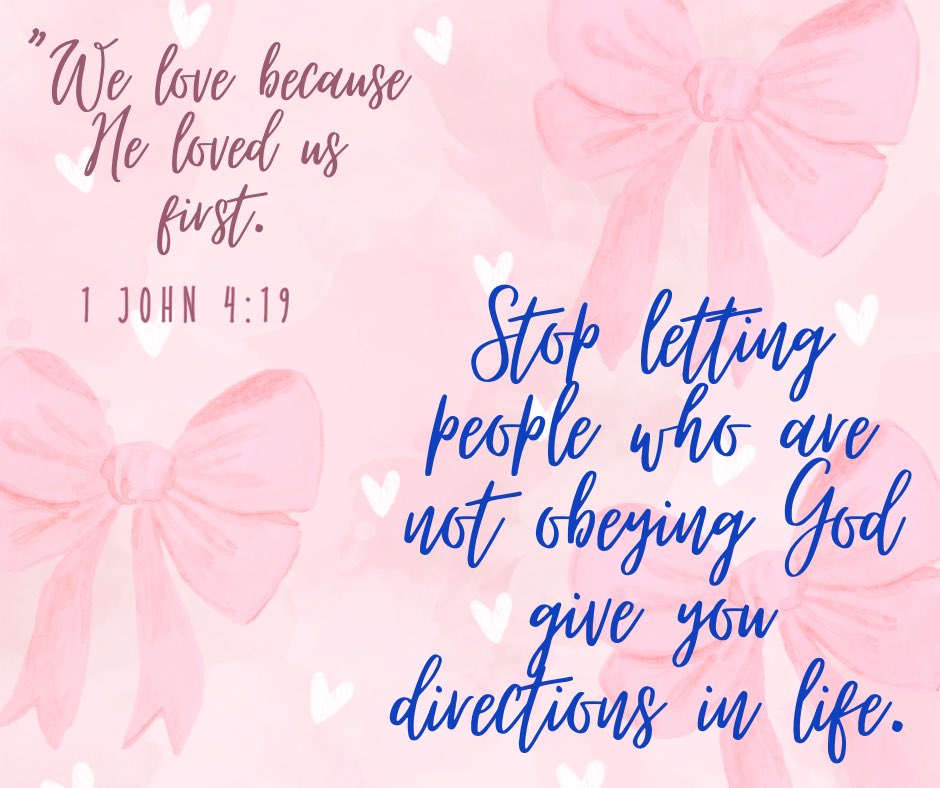 ”We love because
He loved us
first.
1 JOHN 4:19
Stop letting
people who are
not obeying God
give you
directions in life.